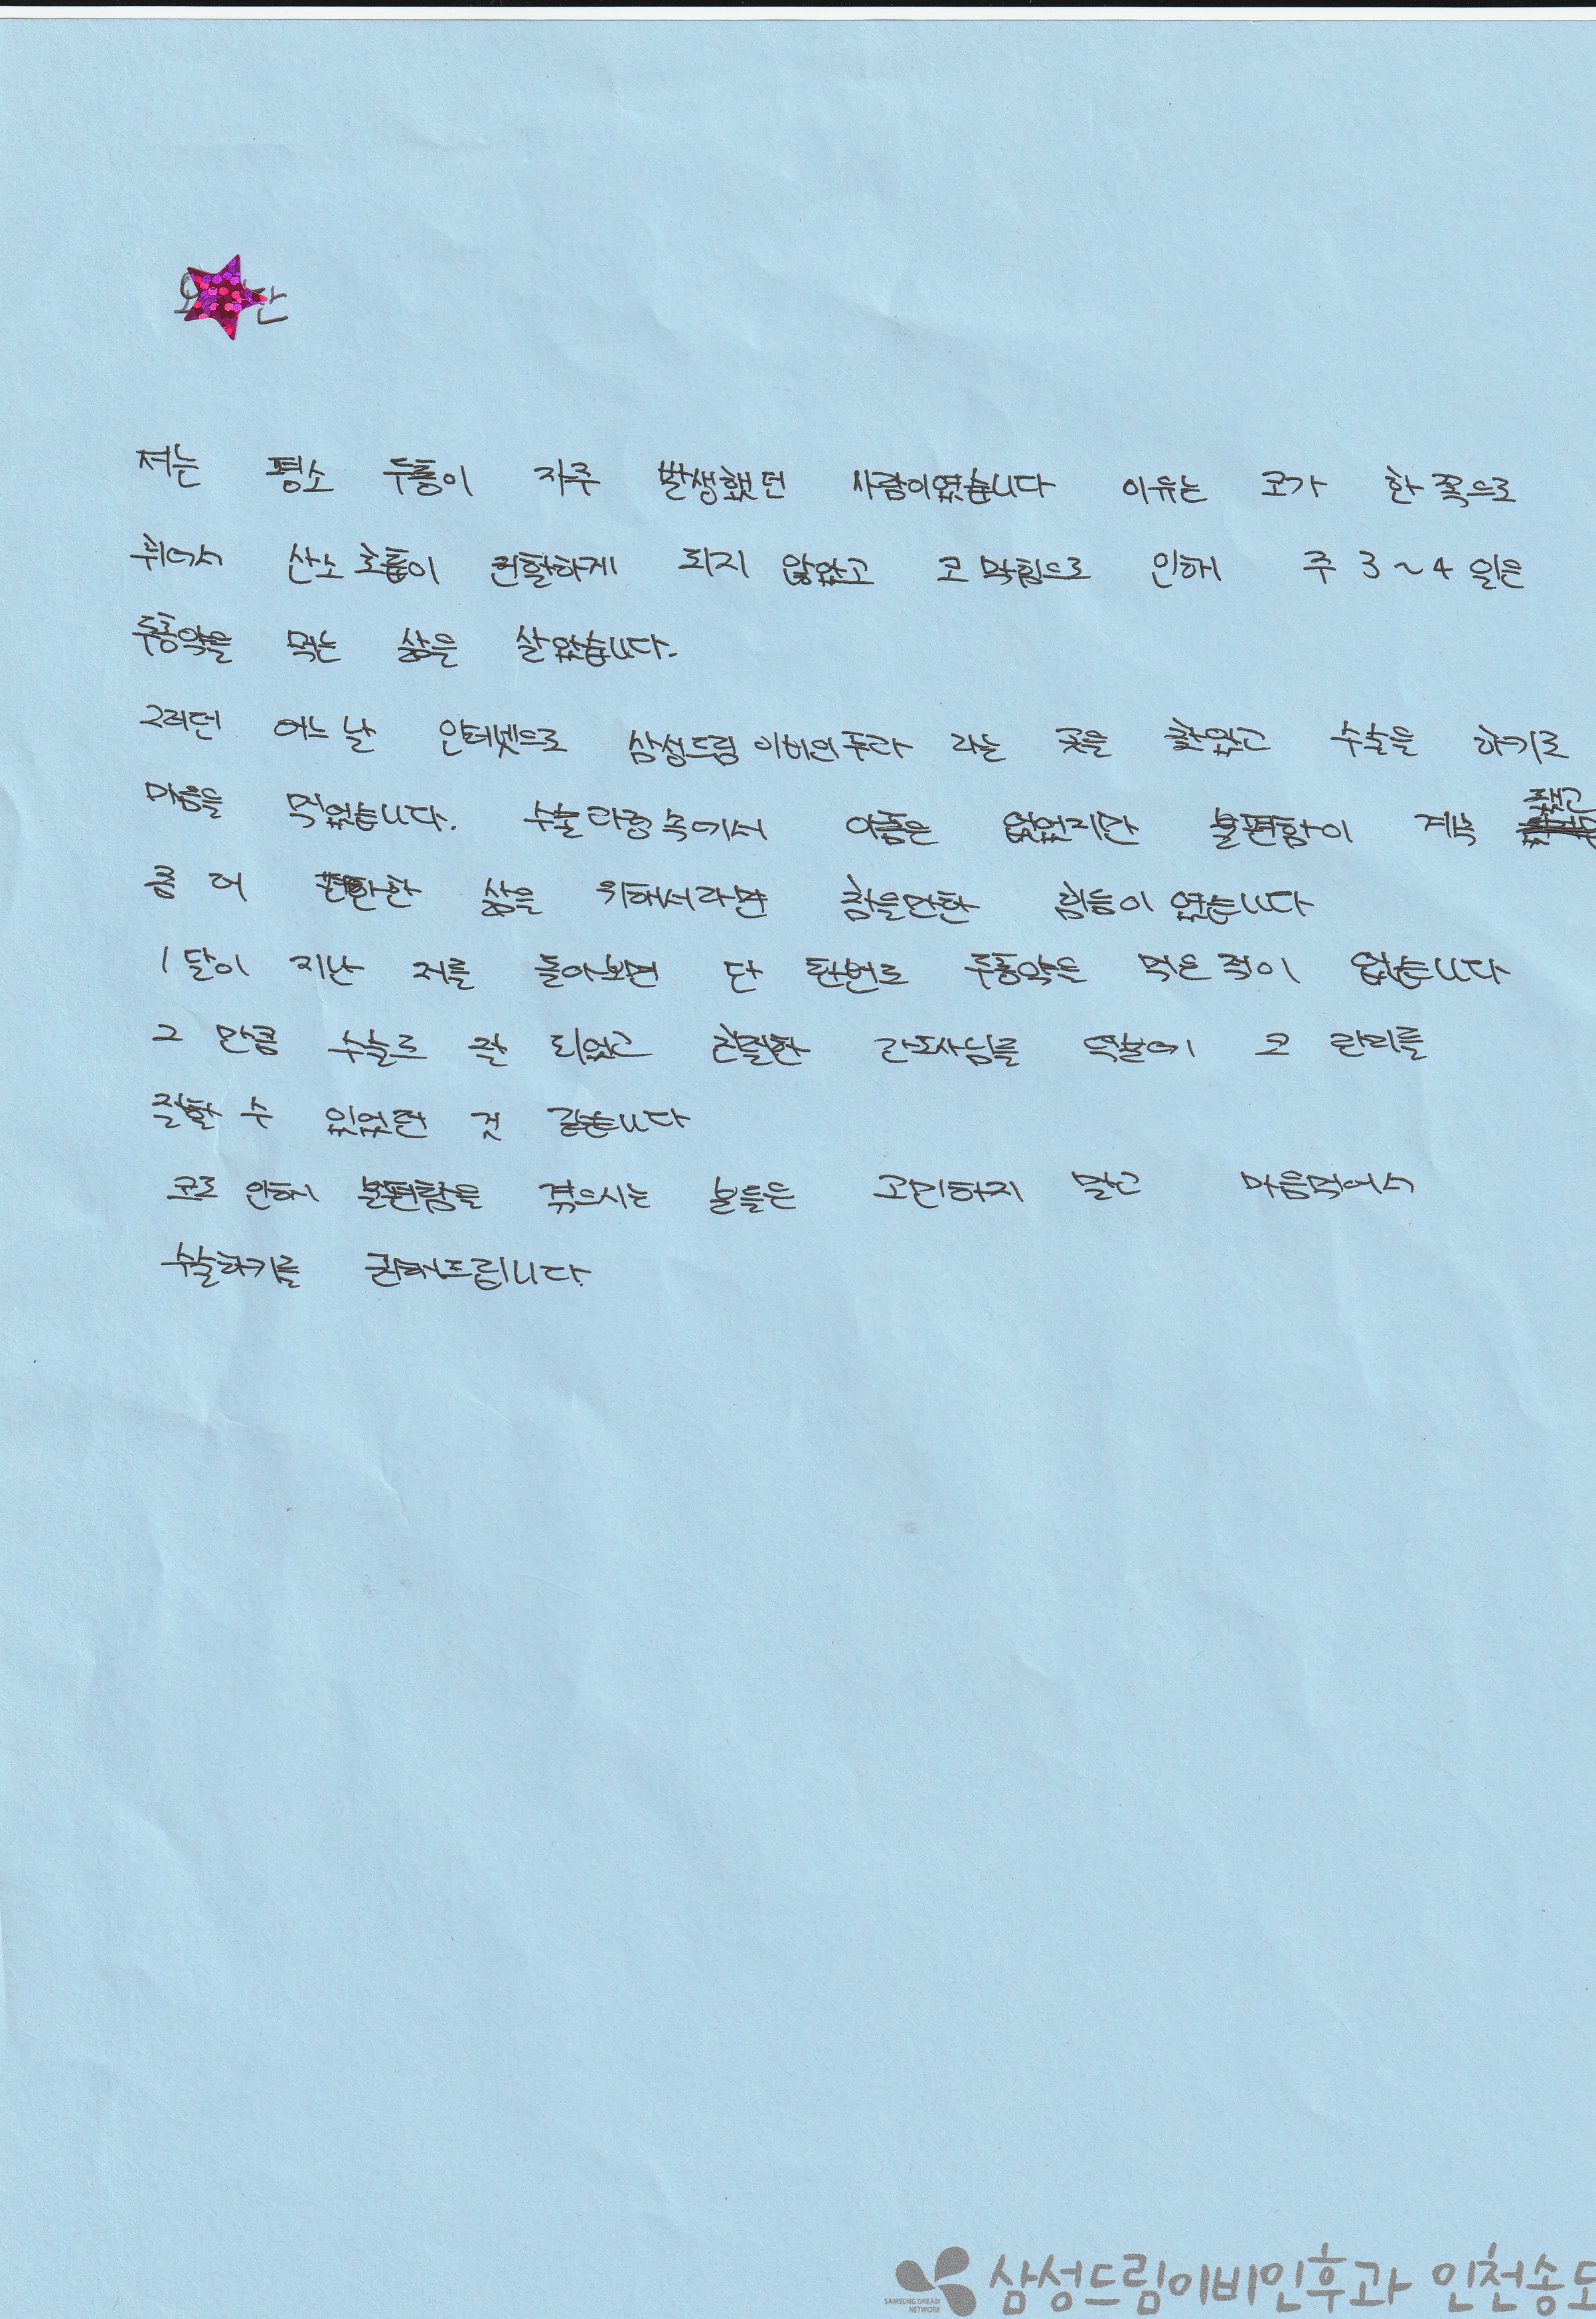 저는 평소 두통이 자주 발생했던 사람이였습니다 이유는 코가 한쪽으로
휘어서 산소호흡이 원활하게 되지 않았고 코막힘으로 인해 주 3~4일은
두통약을 먹는 삶을 살았습니다.
그러던 어느날 인터넷으로 삼성드림이비인후과 라는 곳을 찾았고 수술을 하기로
마음을 먹었습니다. 수술과정속에서 아픔은 없었지만 불편함이 계속 됐고
좀 더 편한한 삶을 위해서라면 참을만한 힘듦이였습니다
1달이 지난 저를 돌아보면 단 한번도 두통약을 먹은적이 없습니다
그 만큼 수술도 잘 되었고 친절한 간호사님들 덕분에 코 관리를
잘할 수 있었던 것 같습니다
코로 인해 불편함을 겪으시는 분들은 고민하지 말고 마음먹어서
수술하기를 권해드립니다.
삼성드림이비인후과 인천송도
SAMSUNG DREAM
NETWORK